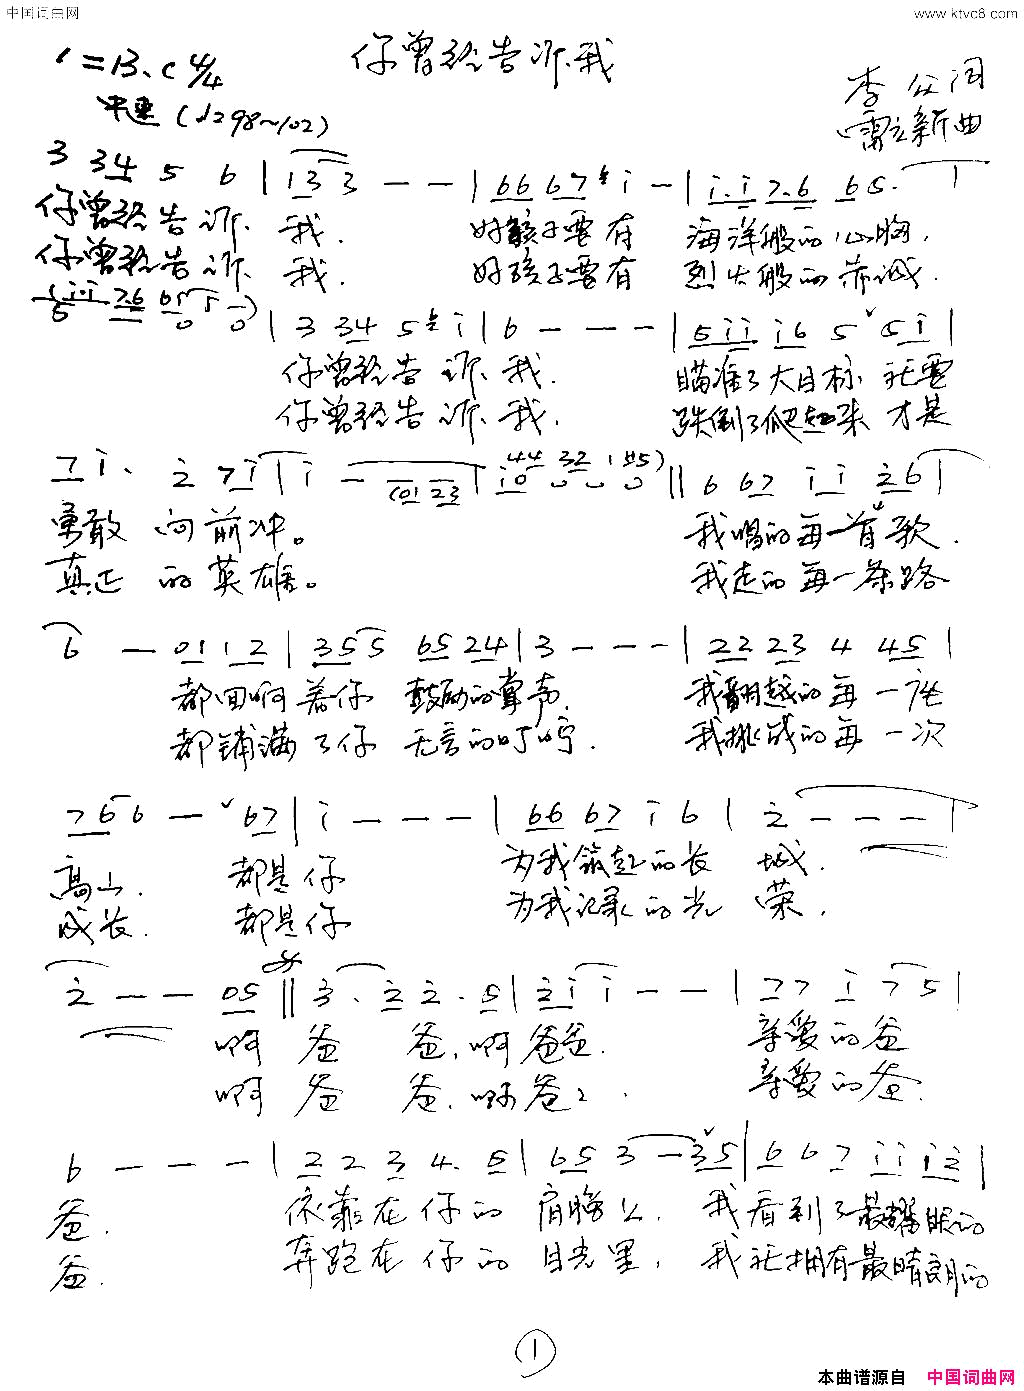 中国词曲网
www.ktvc8.com
你曾经告诉我
1=B、C 4/4
中速 (♩=98~102)
李众词
雷立新曲
3 34 5 6 | 133 - - | 66 67 i - | i.i 7.6 65.
你曾经告诉 我. 好孩子要有 海洋般的心胸.
你曾经告诉 我. 好孩子要有 烈火般的赤诚.
| 3 34 5 i | 6 - - - | 5ii i6 5 5i |
你曾经告诉我. 瞄准了大目标 就要
你曾经告诉我. 跌倒了爬起来 才是
7i. 2 7i | i - (01 23 | i0 || 6 67 ii 26 |
勇敢 向前冲。 我唱的每一首歌.
真正 的英雄。 我走的每一条路
6 - 01 12 | 355 65 24 | 3 - - - | 22 23 4 45 |
都回响着你 鼓励的掌声. 我翻越的每一座
都铺满了你 无言的叮咛. 我挑战的每一次
766 - 67 | i - - - | 66 67 i 6 | 2 - - - |
高山. 都是你 为我筑起的长 城.
成长. 都是你 为我记录的光 荣.
2 - - 05 || 3. 2 2. 5 | 2i i - - | 77 i 75 |
啊 爸 爸,啊爸爸. 亲爱的爸
啊 爸 爸,啊爸爸. 亲爱的爸
6 - - - | 2 2 3 4. 5 | 65 3 - 35 | 6 6 7 ii i2 |
爸. 依靠在你的 肩膀上. 我看到了最耀眼的
爸. 奔跑在你的 目光里, 我就拥有最晴朗的
1
本曲谱源自 中国词曲网